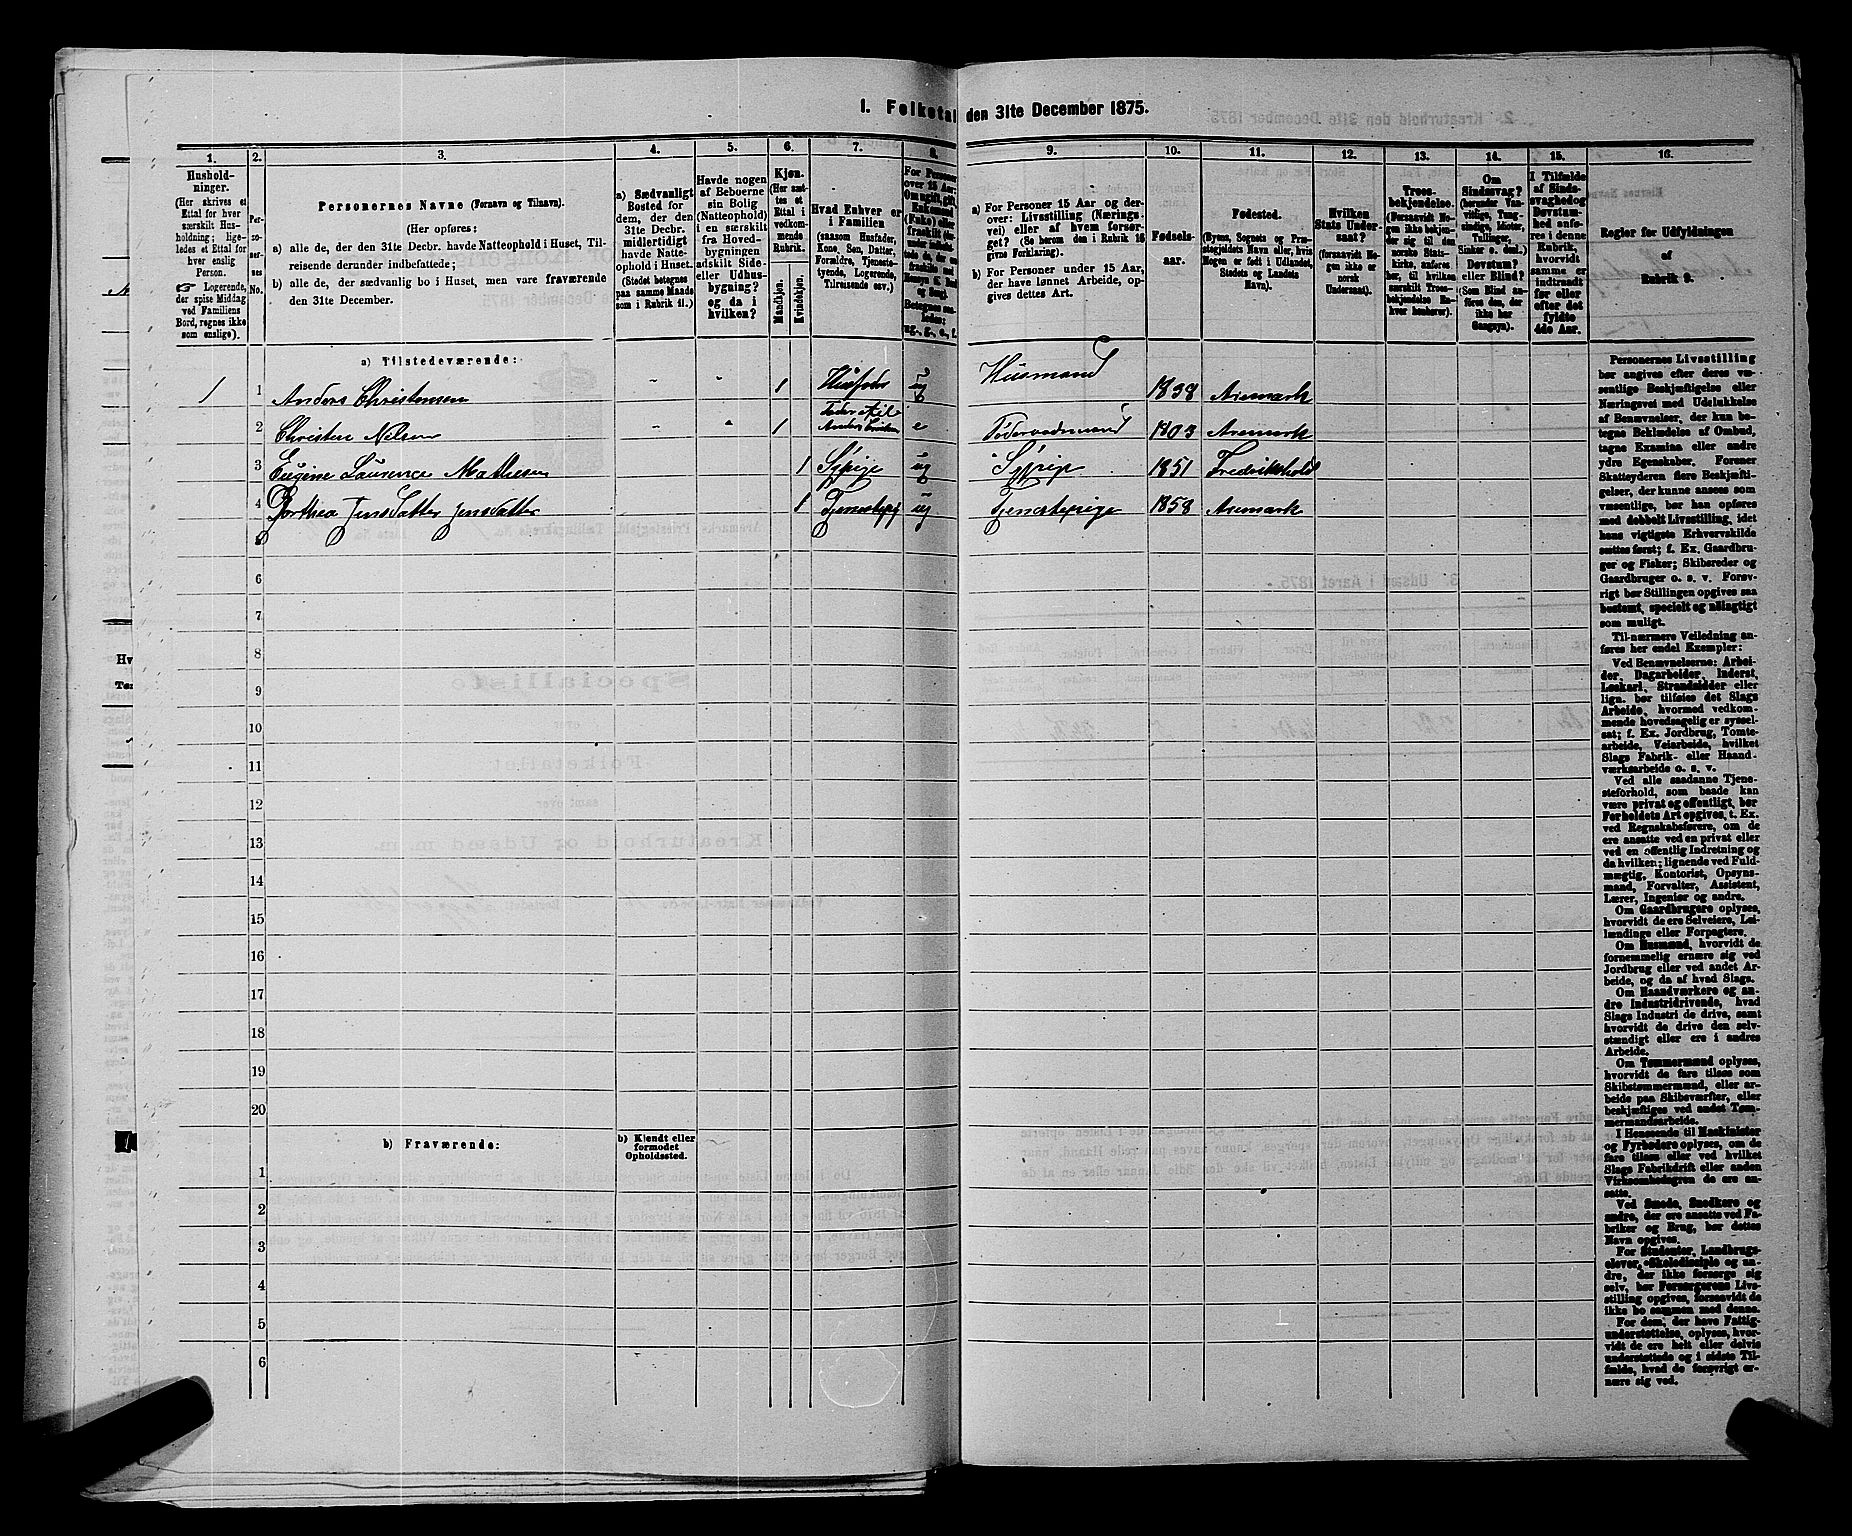 I. Folketal den 31te December 1875.
1.
2.
3.
4.
5.
6.
7.
8.
9.
10.
11.
12.
13.
14.
15.
16.
Husholdninger.
(Her skrives et Ettal for hver særskilt Husholdning; ligeledes et Ettal for hver enslig Person.
☞ Logerende, der spise Middag ved Familiens Bord, regnes ikke som enslige).
Personernes No.
Personernes Navne (Fornavn og Tilnavn).
(Her opføres:
a) alle de, der den 31te Decbr. havde Natteophold i Huset, Tilreisende derunder indbefattede;
b) alle de, der sædvanlig bo i Huset, men vare fraværende den 31te December.
a) Sædvanligt Bosted for dem, der den 31te Decbr. midlertidigt havde Natteophold i Huset. (Stedet betegnes paa samme Maade som i Rubrik 11.)
Havde nogen af Beboerne sin Bolig (Natteophold) i en særskilt fra Hovedbygningen adskilt Side- eller Udhusbygning? og da i hvilken?
Kjøn. (Her sættes et Ettal i vedkommende Rubrik.
Mandkjøn.
Kvindekjøn.
Hvad Enhver er i Familien
(saasom Husfader, Kone, Søn, Datter, Forældre, Tjenestetyende, Logerende, Tilreisende osv.)
For Personer over 15 Aar:
a) For Personer 15 Aar og derover: Livsstilling (Næringsvei) eller af hvem forsørget? (Se herom den i Rubrik 16 givne Forklaring).
b) For Personer under 15 Aar, der have lønnet Arbeide, opgives dettes Art.
Fødselsaar.
Fødested.
(Byens, Sognets og Præstegjeldets Navn eller, hvis Nogen er født i Udlandet, Stedets og Landets Navn).
Hvilken Stats Undersaat?
(forsaavidt Nogen ikke er norsk Undersaat).
Troesbekjendelse.
(Forsaavidt Nogen ikke bekjender sig til den norske Statskirke, anføres her, til hvilken særskilt Troesbekjendelse Enhver henhører).
Om Sindssvag? (herunder Vanvittige, Tungsindige, Idioter, Tullinger, Sinker o. desl.). Døvstum eller Blind? (Som Blind anføres den, der ikke har Gangsyn).
I Tilfælde af Sindssvaghed og Døvstumhed anføres i denne Rubrik, hvorvidt samme er indtraadt før eller efter det fyldte 4de Aar.
Regler for Udfyldningen af Rubrik 9.
a) Tilstedeværende:
1 1 Anders Christensen 1 ug Husmand 1838 Aremark
2 Christen Nilsen 1 e Føderaadsmand 1803 Aremark
3 Eugine Laurence Mathesen 1 Sypige ug Sypige 1851 Fredrikshald
4 Dorthea Jensdatter Jensdatter 1 Tjenestepig ug Tjenestepige 1858 Aremark
5
6
7
8
9
10
11
12
13
14
15
16
17
18
19
20
b) Fraværende:
b) Kjendt eller formodet Opholdssted.
1
2
3
4
5
6
Personernes Livsstilling bør angives efter deres væsentlige Beskjæftigelse eller Næringsvei med Udelukkelse af Benævnelser, der kun betegne Beklædelse af Ombud, tagne Examina eller andre ydre Egenskaber. Forener Skatteyderen flere Beskjæftigelser, der kunne ansees som væsentlige, bør han opføres med dobbelt Livsstilling, idet hans vigtigste Erhvervskilde sættes først; f. Ex. Gaardbruger og Fisker; Skibsreder og Gaardbruger o. s. v. Forøvrigt bør Stillingen opgives saa bestemt, specielt og nøiagtigt som muligt.
Til nærmere Veiledning anføres her endel Exempler:
Ved Benævnelserne: Arbeider, Dagarbeider, Inderst, Løskarl, Strandsidder eller lign. bør tilføies det Slags Arbeide, hvormed vedkommende hovedsagelig er sysselsat; f. Ex. Jordbrug, Tomtearbeide, Veiarbeide, hvilket Slags Fabrik- eller Haandværksarbeide o. s. v.
Ved alle saadanne Tjenesteforhold, som baade kan være privat og offentligt, bør Forholdets Art opgives, t. Ex. ved Regnskabsførere, om de ere ansatte ved en privat eller ved en offentlig Indretning og da hvilken; lignende ved Fuldmægtig, Kontorist, Opsynsmand, Forvalter, Assistent, Lærer, Ingeniør og andre.
Om Gaardbrugere oplyses, hvorvidt de ere Selveiere, Leilændinge eller Forpagtere.
Om Husmænd, hvorvidt de fornemmelig ernære sig ved Jordbrug eller ved andet Arbeide, og da af hvad Slags.
Om Haandværkere og andre Industridrivende, hvad Slags Industri de drive, samt hvorvidt de drive den selvstændigt eller ere i andres Arbeide.
Om Tømmermænd oplyses, hvorvidt de fare tilsøs som Skibstømmermænd, eller arbeide paa Skibsværfter, eller beskjæftiges ved andet Tømmermandsarbeide.
I Henseende til Maskinister og Fyrbødere oplyses, om de fare tilsøs eller ved hvilket Slags Fabrikdrift eller anden Virksomhedsgren de ere ansatte.
Ved Smede, Snedkere og andre, der ere ansatte ved Fabriker og Brug, bør dettes Navn opgives.
For Studenter, Landbrugselever, Skoledisciple og andre, der ikke forsørge sig selv, bør Forsørgerens Livsstilling opgives, forsaavidt de ikke bo sammen med denne.
For dem, der have Fattigunderstøttelse, oplyses, hvorvidt de ere helt eller delvis understøttede og i sidste Tilfælde, hvad de forøvrigt ernære sig ved.